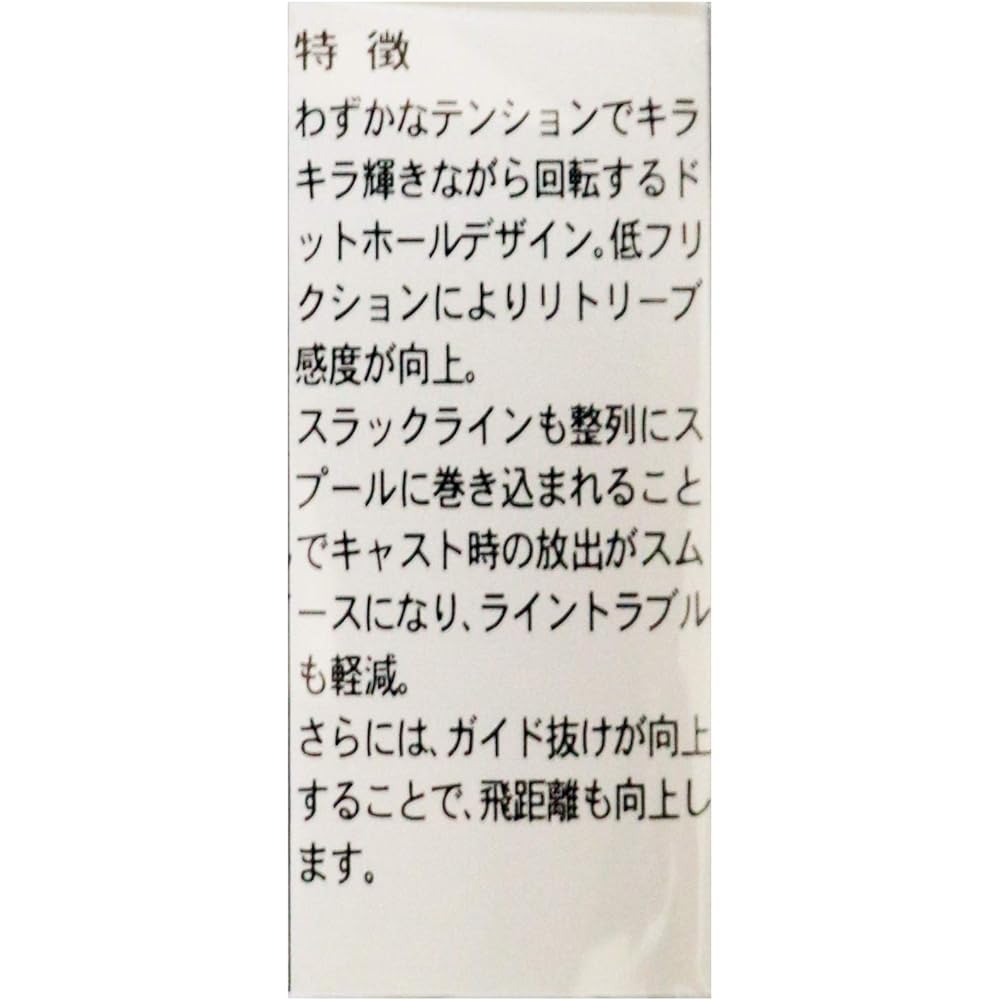 特 徴
わずかなテンションでキラ
キラ輝きながら回転するド
ットホールデザイン。低フリ
クションによりリトリーブ
感度が向上。
スラックラインも整列にス
プールに巻き込まれること
でキャスト時の放出がスム
ースになり、ライントラブル
も軽減。
さらには、ガイド抜けが向上
することで、飛距離も向上し
ます。